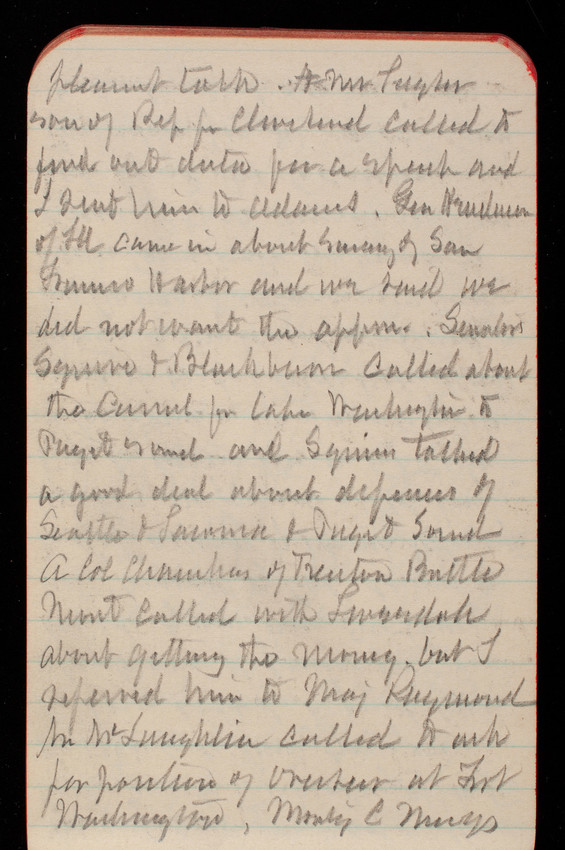 pleasant talk. A Mr. Taylor
son of Rep from Cleveland called to
find out data for a speech and
I sent him to Adams. Gen Henderson
of Ill. came in about Survey of San
Francisco Harbor and we said we
did not want the approp. Senators
Squire & Blackburn called about
the Canal from Lake Washington to
Puget Sound and Squire talked
a good deal about defences of
Seattle & Tacoma & Puget Sound
A Col Chambers of Trenton Battle
Mont called with
about getting the money. but I
referred him to Maj Raymond
Mr McLaughlin called to ask
for position of Overseer at Fort
Washington, Monty C Meigs